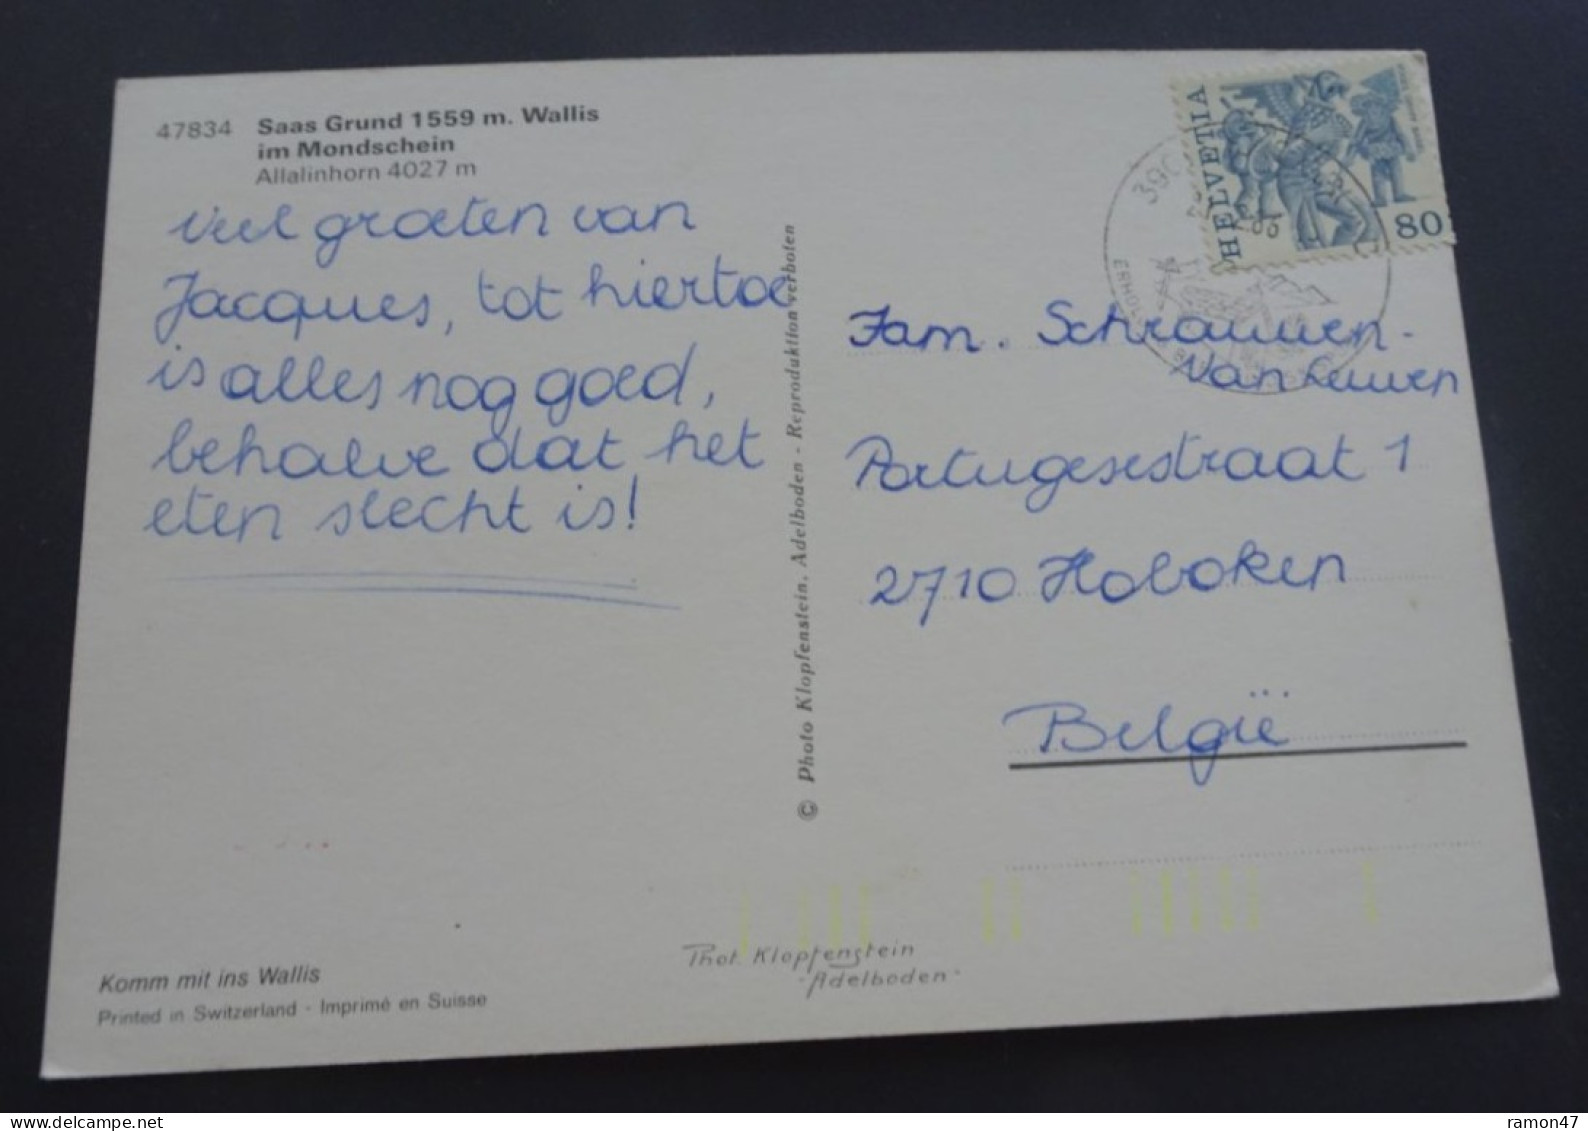 47834 Saas Grund 1559 m. Wallis
im Mondschein
Allalinhorn 4027 m
Veel groeten van
Jacques, tot hiertoe
is alles nog goed,
behalve dat het
eten slecht is!
Komm mit ins Wallis
Printed in Switzerland - Imprimé en Suisse
© Photo Klopfenstein, Adelboden - Reproduktion verboten
Phot. Klopfenstein
Adelboden
HELVETIA
80
Fam. Schrauwen-
Van Leuven
Portugesestraat 1
2710 Hoboken
België
ramon47